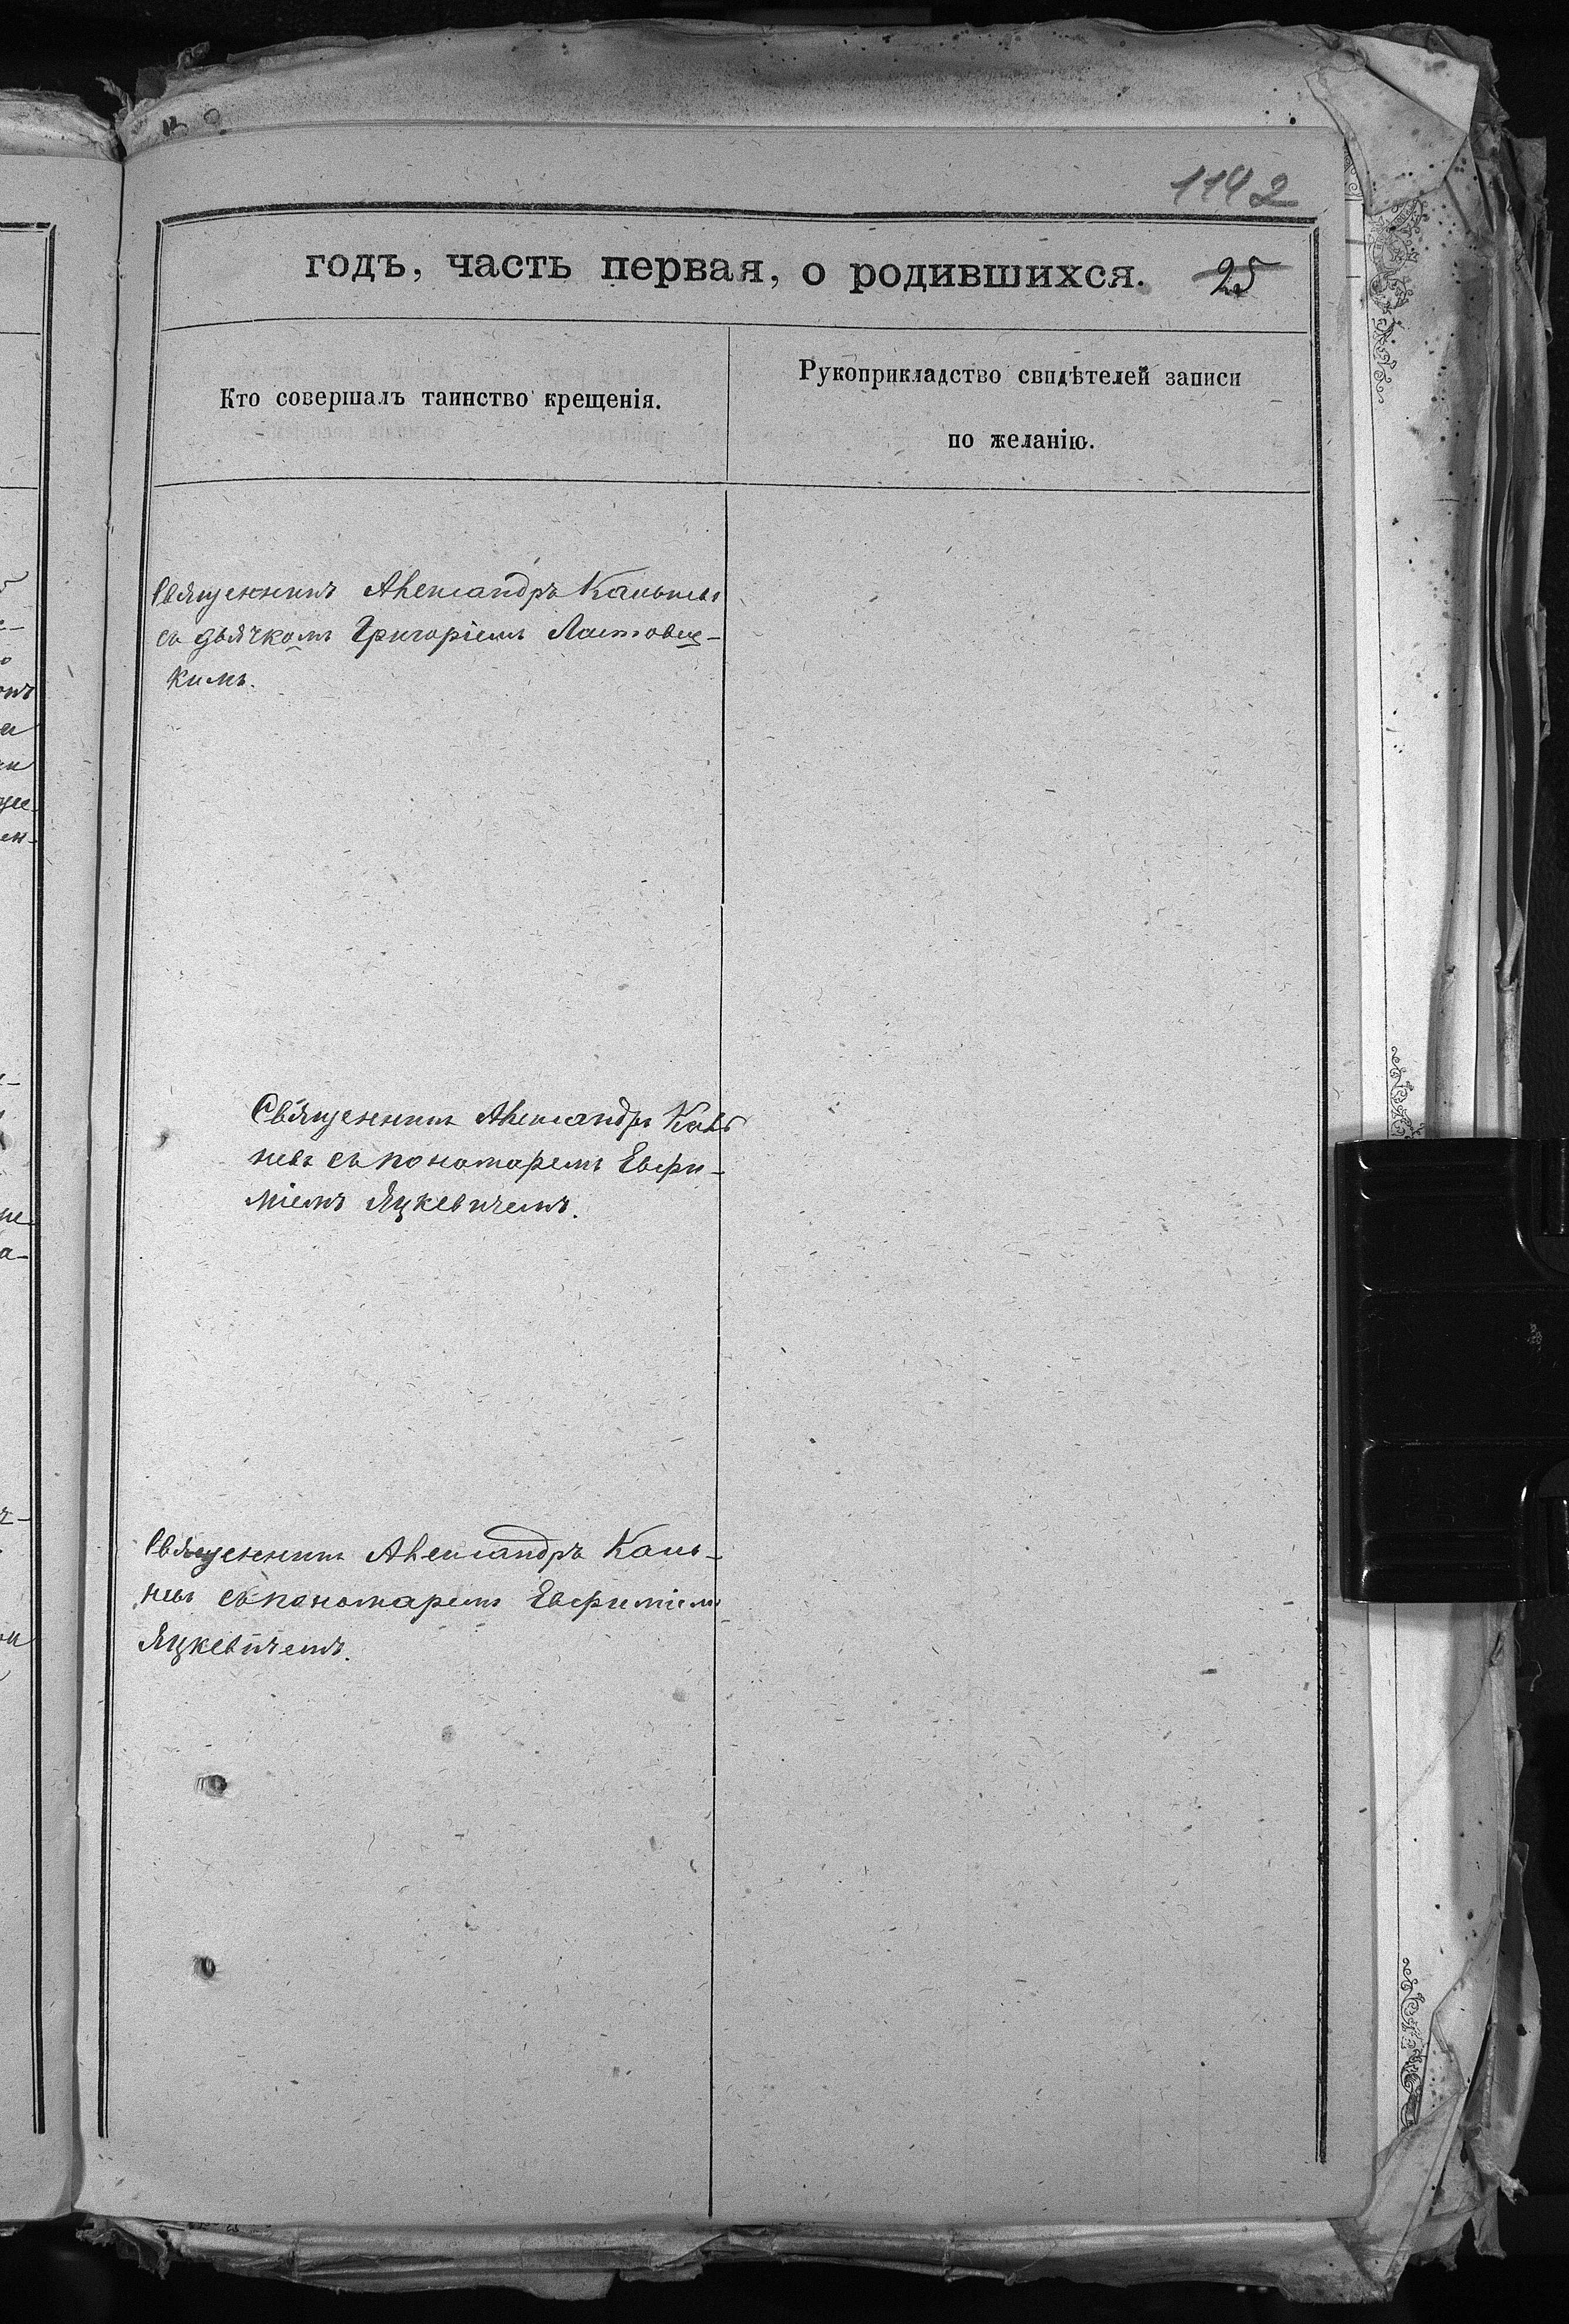 1142
годъ, часть первая, о родившихся. 25
Кто совершалъ таинство крещенія.
Рукоприкладство свидѣтелей записи
по желанію.
Священникъ Александръ
съ дьячкомъ Григоріемъ Ластовец-
кимъ.
Священникъ Александръ
съ пономаремъ Евфи-
міемъ Яцкевичемъ.
Священникъ Александръ
съ пономаремъ Евфиміемъ
Яцкевичемъ.